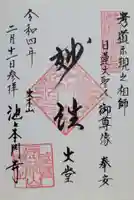 孝道示現之祖師
日蓮大聖人御尊像 奉安
妙法
大堂
大本山
池上本門寺
令和四年
二月十二日参拝